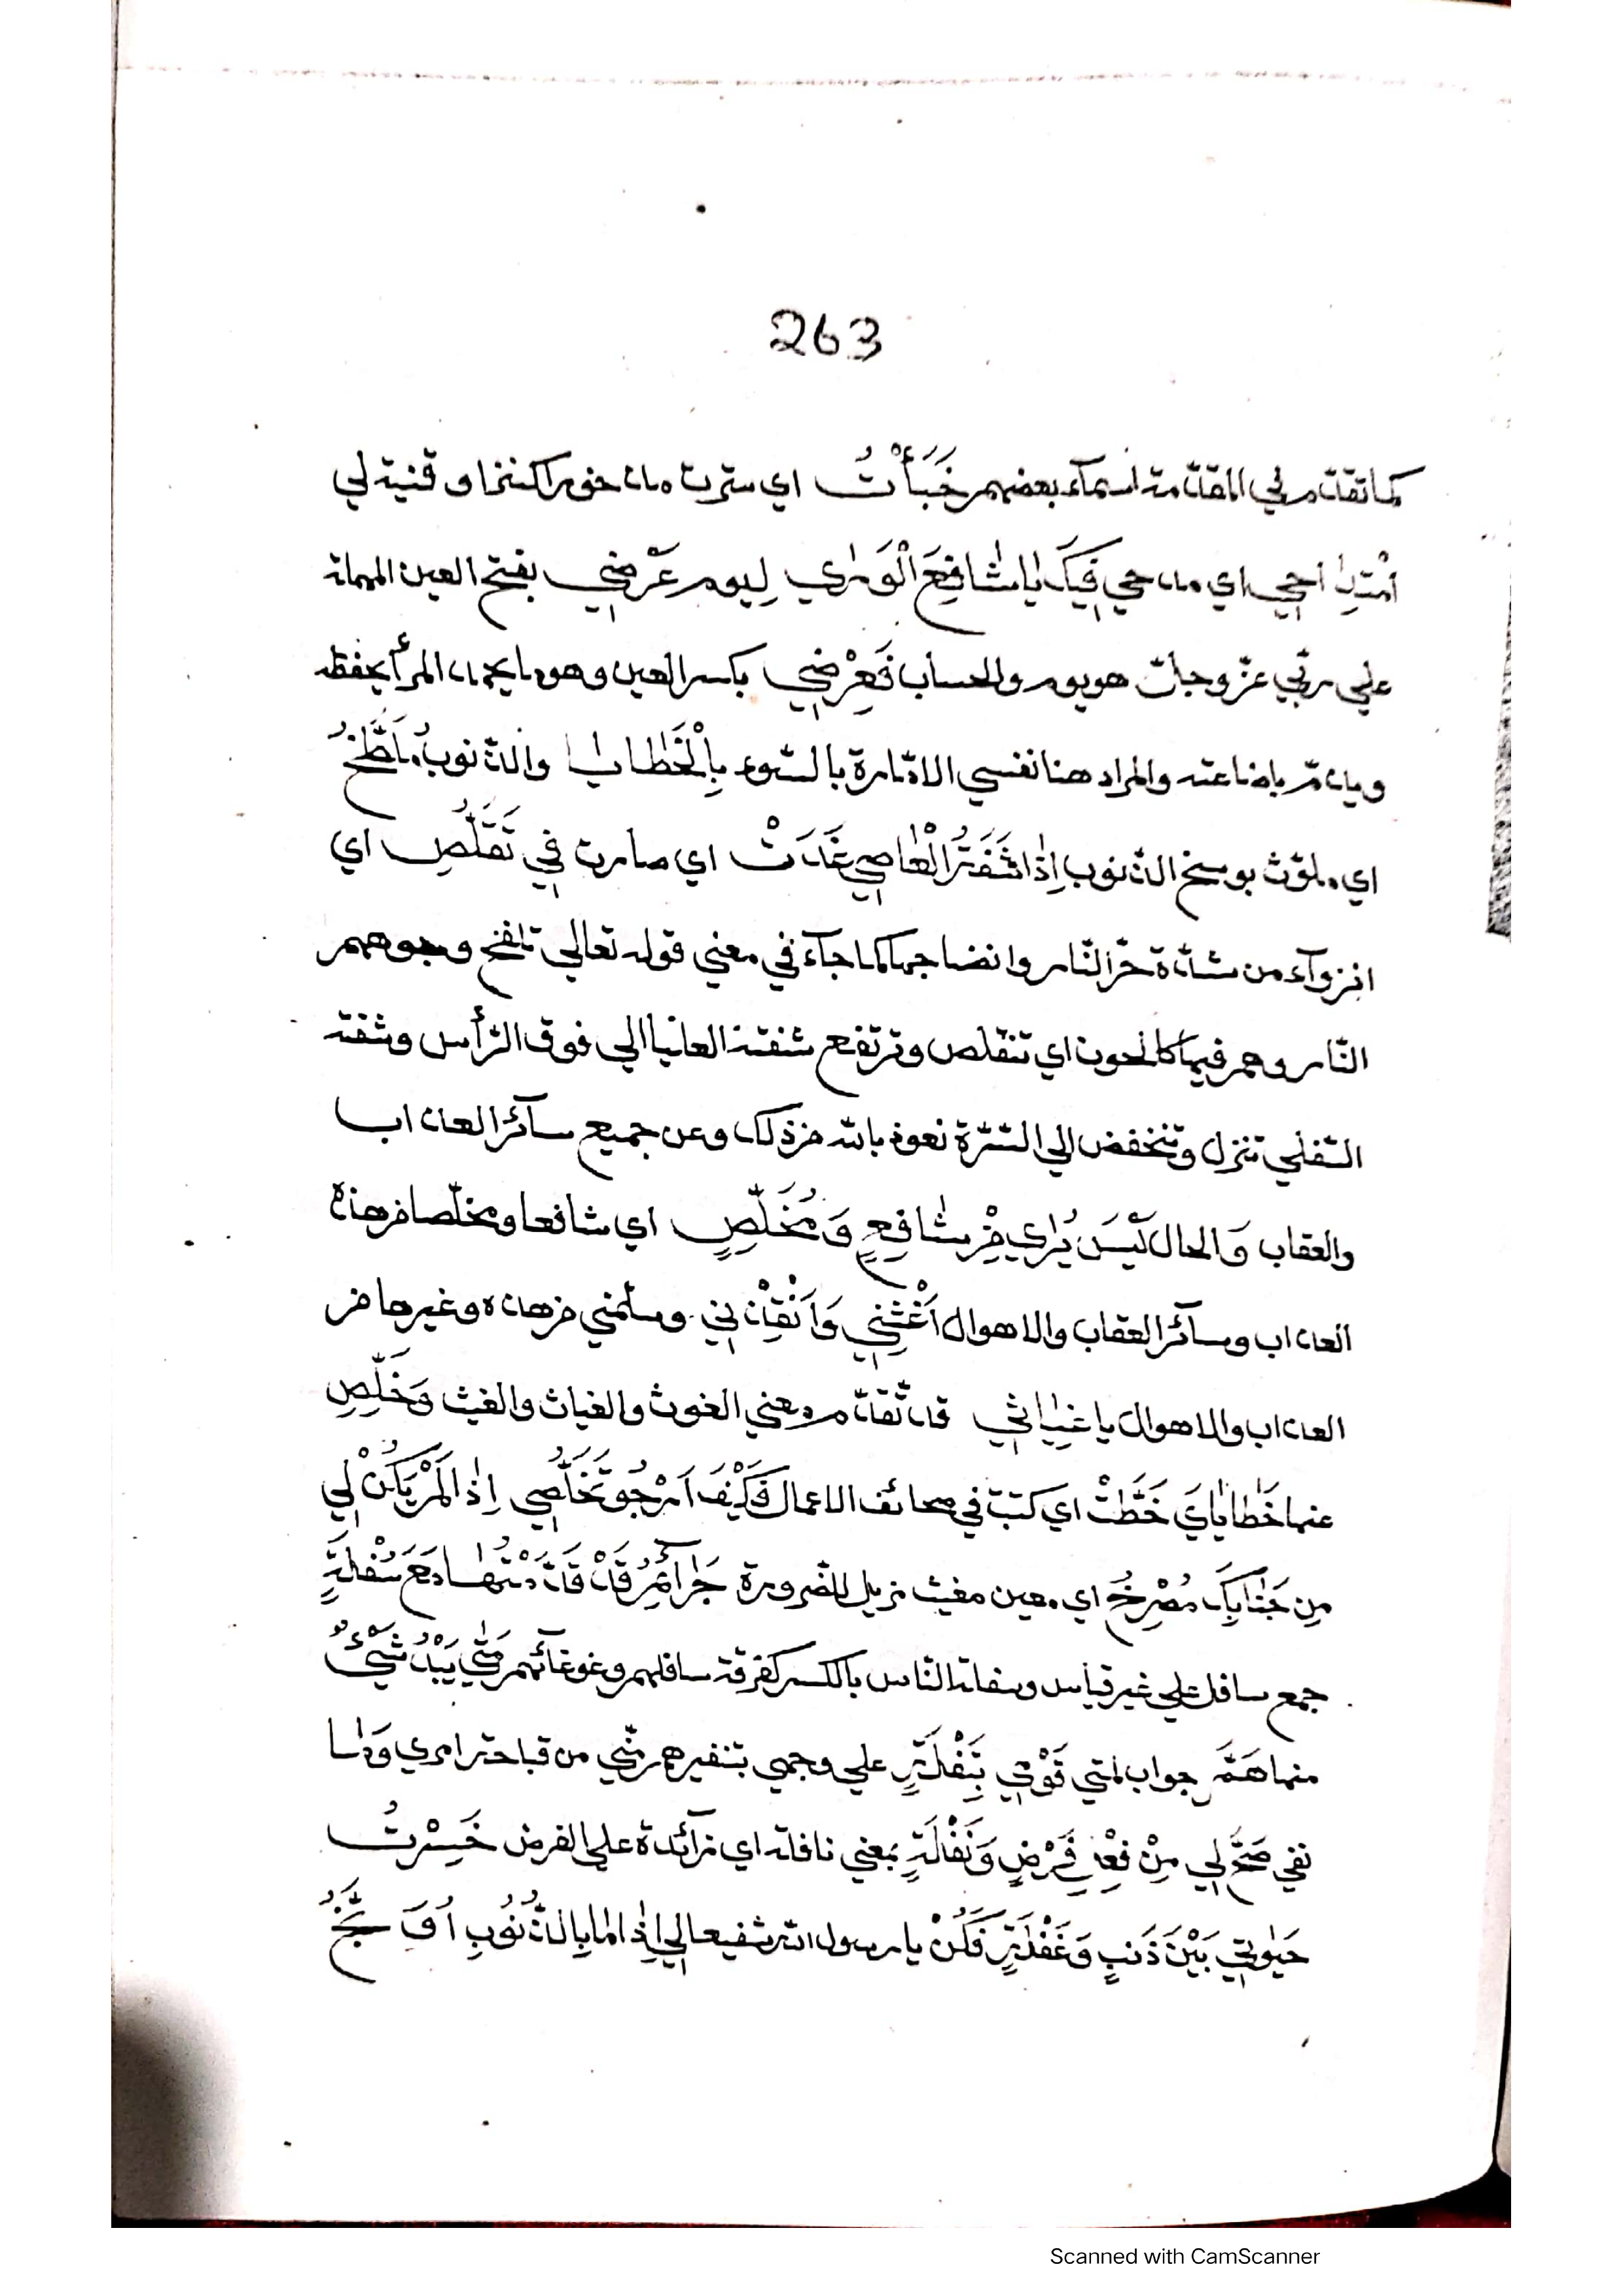 263
كما تقدّم في المقدّمة اسمآء بعضهم خَبَأْتُ اي سترت مدخوراكنزا وقنية لي
اي مدحي فِيكَ يَا شَافِعَ الْوَرٰي لِيوم عَرْضِي بفتح العين المهملة
علي ربّي عزّ وجلّ هو يوم والحساب فَعِرْضِي بكسر العين وهو ما يحمد المرأ بحفظه
ويذمّ باضاعته والمراد هنا نفسي الامّارة بالسّوء بِالْخَطَايَا والذّنوب مُلَطَّخُ
اي ملوّث بوسخ الذّنوب اِذَا شَفَتُ الْعَاصِي غَدَتْ اي صارت فِي تَقَلُّصِ اي
انزوآء من شدّة حرّ النّار وانضاجها كما جآء في معني قوله تعالي تلفح وجوههم
النّار وهم فيها كالحون اي تتقلص وترتفع شفته العليا الي فوق الرّأس وشفته
السّفلي تنزل وتنخفض الي السّرّة نعوذ بالله من ذلك وعن جميع سآئر العذاب
والعقاب وَالحال لَيْسَ يُرٰي مِنْ شَافِعٍ وَمُخَلِّصٍ اي شافعا ومخلّصا من هذه
العذاب وسآئر العقاب والاهوال اَغْثِنِي وَاَنْقِذْنِي وسلّمني من هذه وغيرها من
العذاب والاهوال يا غِيَاثِي قد تقدّم معني الغوث والغياث والغيث وَخَلِّصِ
عنها خَطَايَايَ خُطَّتْ اي كتبت في صحائف الاعمال فَكَيْفَ اَرْجُو تَخَلُّصِي اِذَا لَمْ يَكُنْ لِي
مِن جَنَابِكَ مُصْرِخُ اي معين مغيث مزيل للضرورة جَرَآئِمُ قَدْ قَدَّمْتُهَا مَعَ سُفْلَةٍ
جمع سافل علي غير قياس وسفلة النّاس بالكسر كفرقة سافلهم وغوغآئهم مَتٰي يَبْدُ شَيْءٌ
منها هَمَّ جواب لمتي قَوْمِي بِتَفْلَةٍ علي وجهي بتنفيرهم منّي من قباحة امري وَمَا
نفي صَحَّ لِي مِنْ فِعْلِ فَرْضٍ وَنَفْلَةٍ بمعني نافلة اي زآئدة علي الفرض خَسِرْتُ
حَيٰوتِي بَيْنَ ذَنبٍ وَغَفْلَةٍ فَكُنْ يا رسول الله شفيعا لِي اِذَا مَا بِالذُّنُوبِ اُوَبَّخُ
Scanned with CamScanner